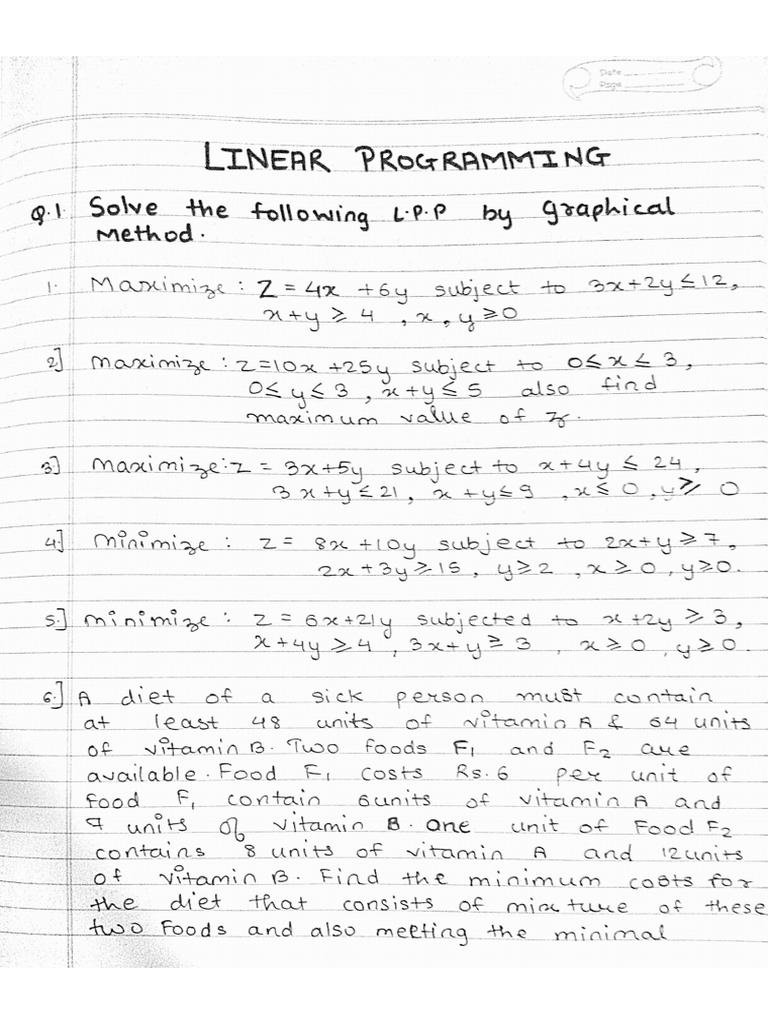 Date
Page
LINEAR PROGRAMMING
Q.1. Solve the following L.P.P by graphical
method.
1. Maximize : Z = 4x + 6y subject to 3x+2y ≤ 12,
x+y ≥ 4 , x, y ≥ 0
2] maximize : z=10x +25y subject to 0≤x≤ 3,
0≤ y ≤ 3 , x+y≤ 5 also find
maximum value of z.
3] maximize: z = 3x+5y subject to x+4y ≤ 24,
3x+y≤21, x+y≤9 , x≤ 0, y≥ 0
4.] minimize : z = 8x +10y subject to 2x+y ≥ 7,
2x+3y≥15, y≥2 , x≥0, y≥0.
5.] minimize : z = 6x+21y subjected to x+2y ≥ 3,
x+4y ≥ 4 , 3x+y ≥ 3 , x≥0 , y≥0.
6.] A diet of a sick person must contain
at least 48 units of vitamin A & 64 units
of vitamin B. Two foods F1 and F2 are
available. Food F1 costs Rs.6 per unit of
food F1 contain 6units of vitamin A and
7 units of vitamin B. One unit of Food F2
contains 8 units of vitamin A and 12units
of vitamin B. Find the minimum costs for
the diet that consists of mixture of these
two Foods and also meeting the minimal